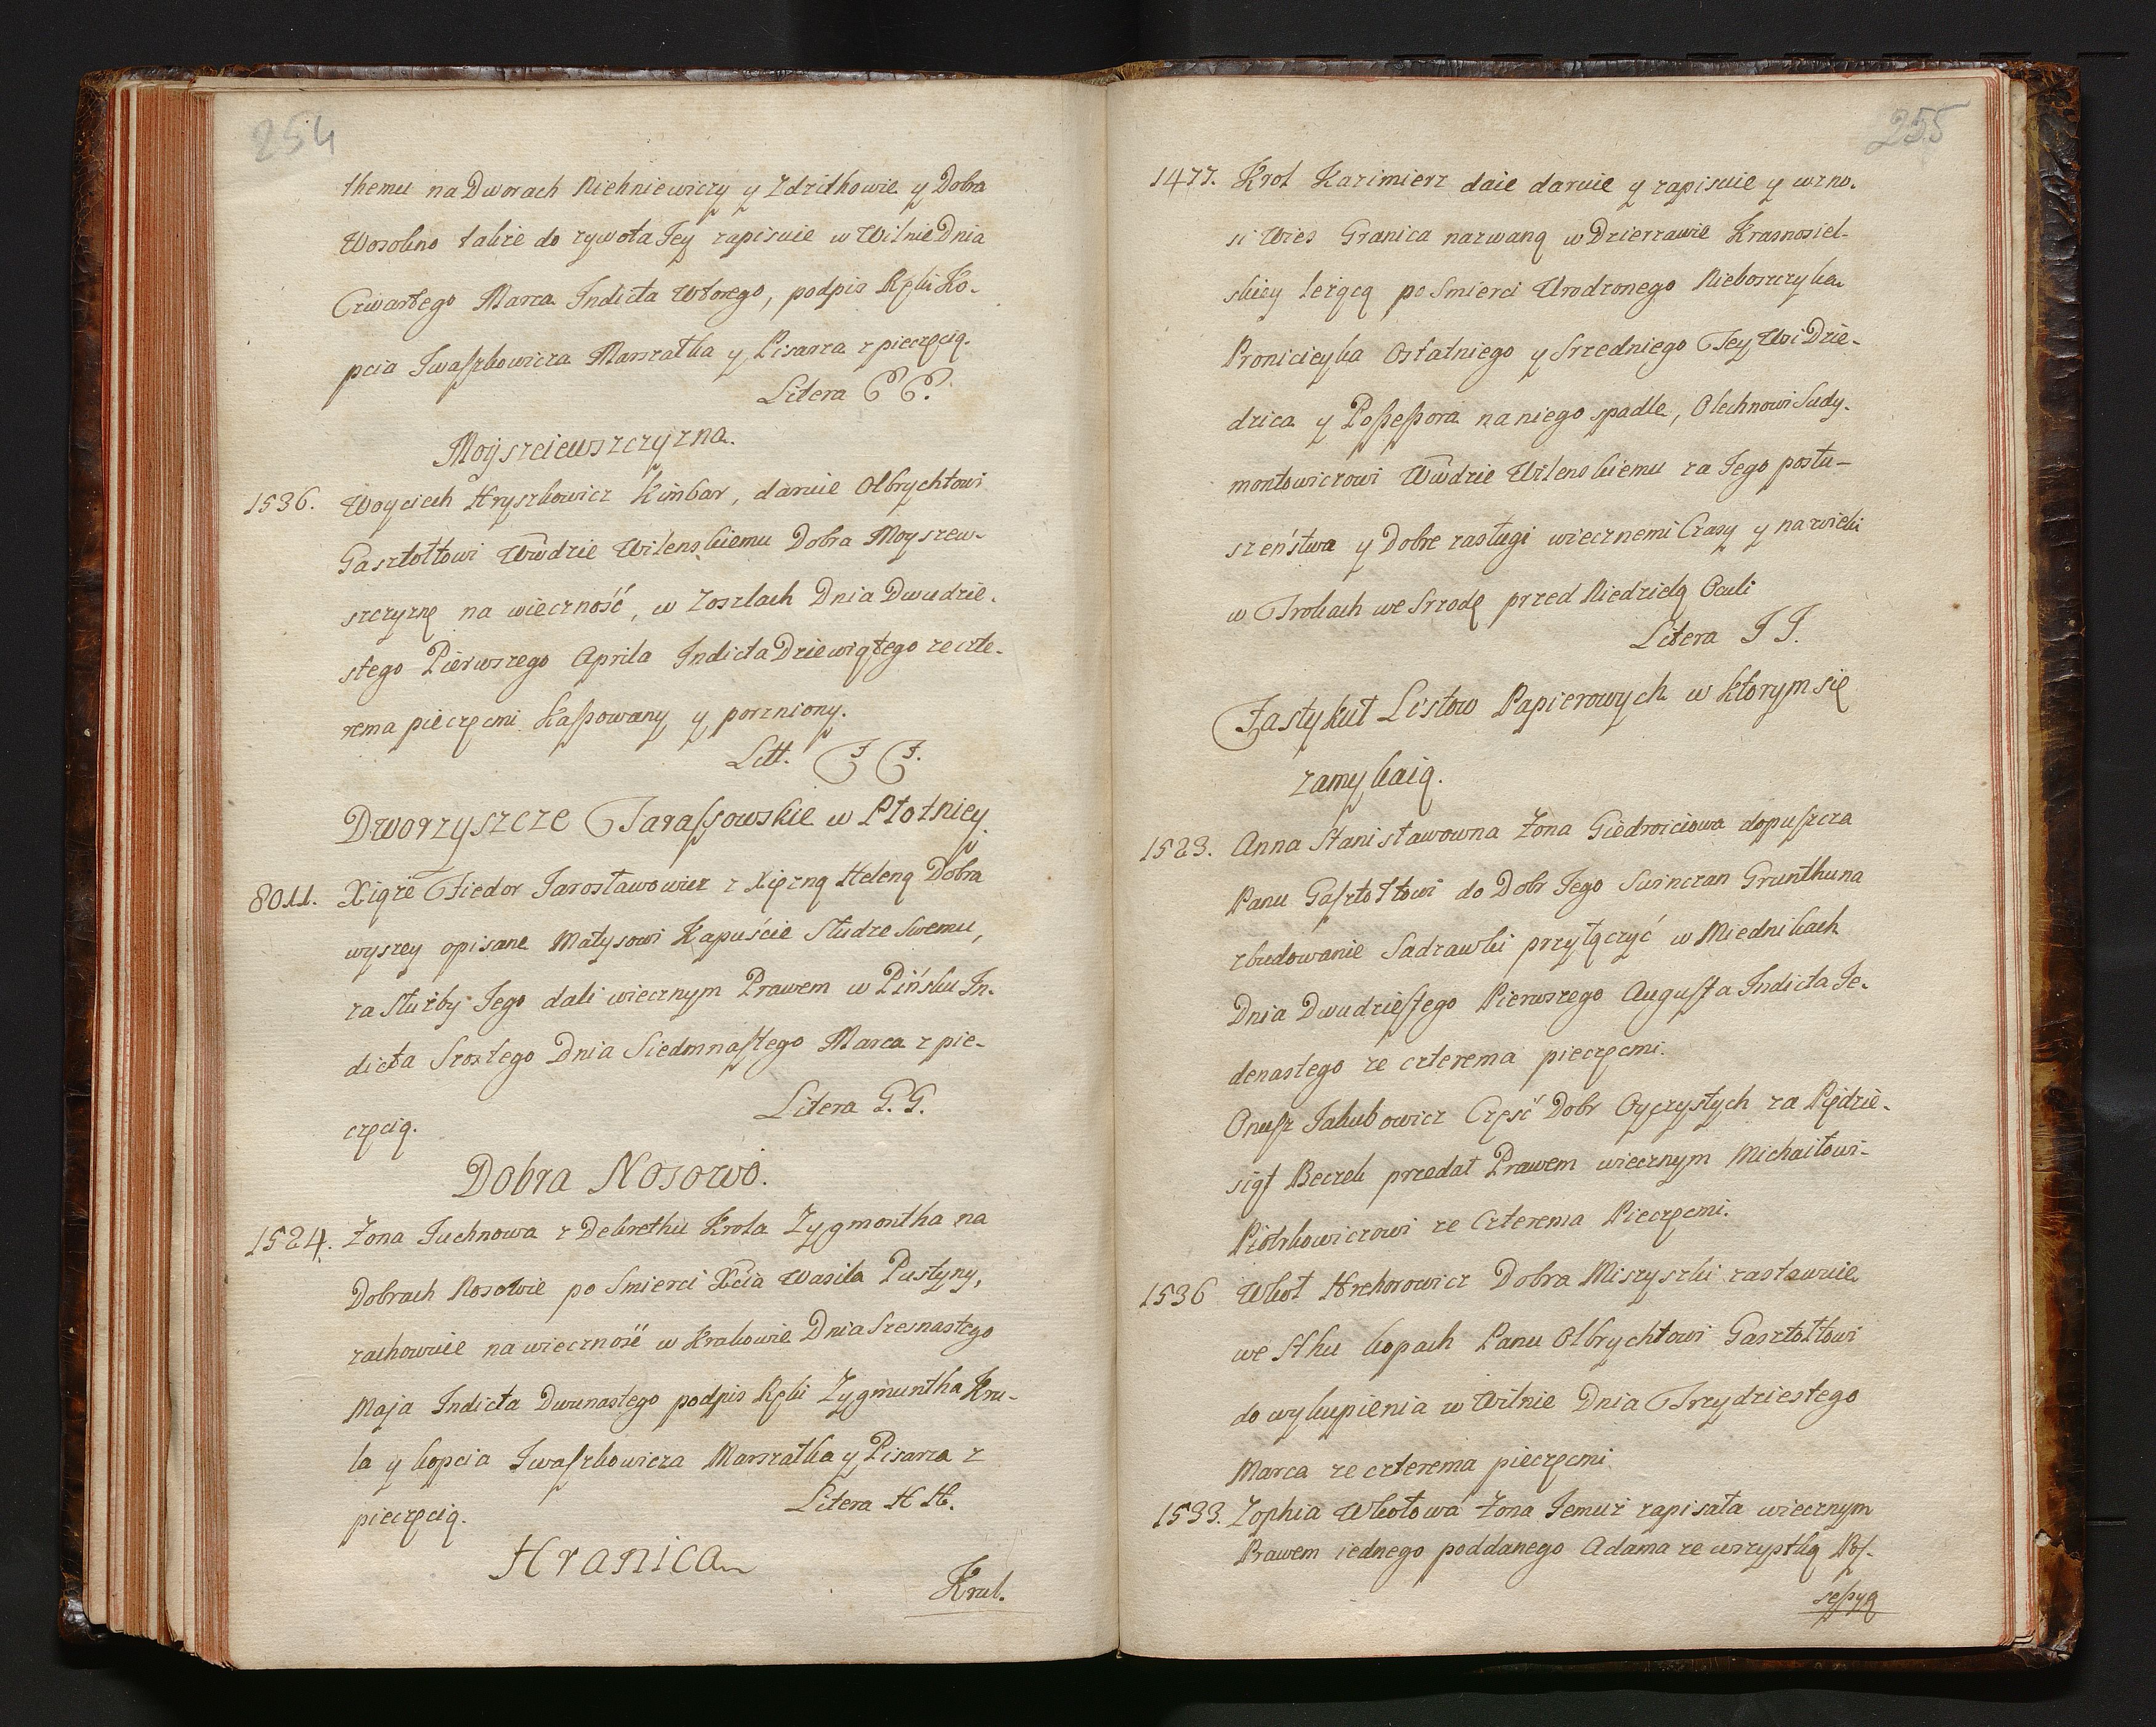 254
themu na Dworach Niehniewiczy y Zdzithowie y Dobra
Wosolino takze do zywota Jey zapisuie w Wilnie Dnia
Czwartego Marca Indicta Wtorego, podpis Ręki Ko-
pcia Iwaszkowicza Marszałka y Pisarza z pieczęcią.
Litera E E.
Moyszeiewszczyzna.
1536. Woyciech Hryszkowicz Kimbar, daruie Olbrychtowi
Gasztołtowi Wwdzie Wilenskiemu Dobra Moyszew-
szczyznę na wieczność, w Zoszlach Dnia Dwudzie-
stego Pierwszego Aprila Indicta Dziewiątego ze czte-
rema pieczęcmi Kassowany y porzniony.
Litt. F F.
Dworzyszcze Tarassowskie w Płotnicy
8011. Xiąże Fiedor Jarosławowicz z Xiężną Heleną Dobra
wyszey opisane Matysowi Kapuście Słudze Swemu,
za Służby Jego dali wiecznym Prawem w Pińsku In-
dicta Szostego Dnia Siedmnastego Marca z pie-
częcią.
Litera G. G.
Dobra Nosowo.
1524. Żona Juchnowa z Dekrethu Krola Zygmontha na
Dobrach Nosowie po Smierci Xcia Wasila Pustyny,
zachowuie na wieczność w Krakowie Dnia Szesnastego
Maja Indicta Dwunastego podpis Ręki Zygmuntha Kru-
la y kopcia Iwaszkowicza Marszałka y Pisarza z
pieczęcią.
Litera H H.
Hranica
Krul.
255
1477. Krol Kazimierz daie daruie y zapisuie y wzno-
si Wies Granica nazwaną w Dzierzawie Krasnosiel-
skiey leżącą po Smierci Urodzonego Nieboszczyka
Pronicieyka Ostatniego y Srzedniego Tey Wsi Dzie-
dzica y Possessora na niego spadle, Olechnowi Sudy-
montowiczowi Wwdzie Wilenskiemu za Jego posłu-
szeństwa y Dobre zasługi wiecznemi Czasy y na wieki
w Trokach we Srzodę przed Niedzielą Oculi
Litera I I.
Fastykuł Listow Papierowych w ktorym się
zamykaią.
1523. Anna Stanisławowna Żona Giedroiciowa dopuszcza
Panu Gasztołtowi do Dobr Jego Swinczan Grunthu na
zbudowanie Sadzawki przyłączyć w Miednikach
Dnia Dwudziestego Pierwszego Augusta Indicta Je-
denastego ze czterema pieczęcmi.
Onusz Jakubowicz Część Dobr Oyczystych za Pędzie-
siąt Beczek przedał Prawem wiecznym Michaiłowi-
Piotrkowiczowi ze Czterema Pieczęcmi.
1536 Wkoł Hrehorowicz Dobra Miszyszki zastawuie
we Sthu kopach Panu Olbrychtowi Gasztołtowi
do wykupienia w Wilnie Dnia Trzydziestego
Marca ze czterema pieczęcmi
1533. Zophia Wkołowa Żona Jemuż zapisała wiecznym
Prawem iednego poddanego Adama ze wszystką Pos-
sessyą